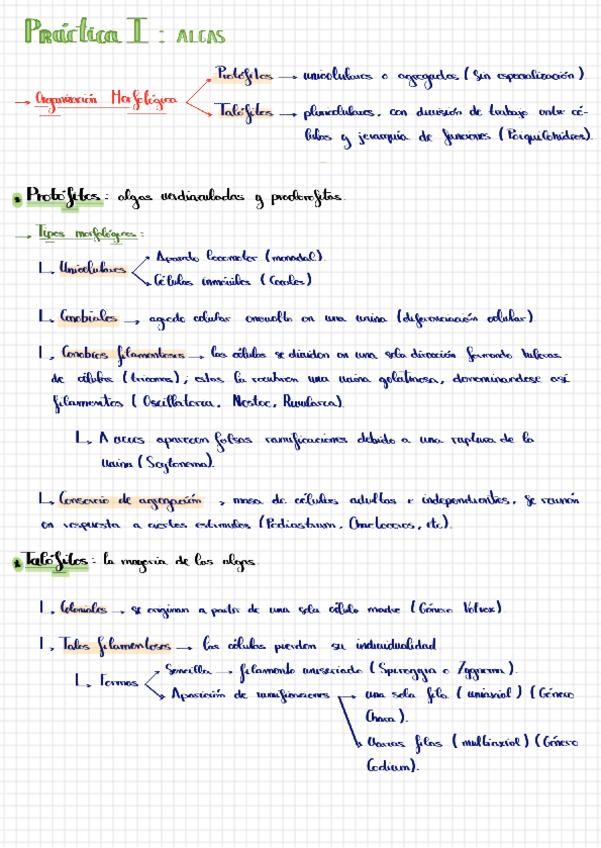 Práctica I : ALGAS
Protófitos → unicelulares o agregados (sin especialización)
→ Organización Morfológica
Talófitos → pluricelulares, con división de trabajo entre cé-
lulas y jerarquía de funciones (Parquilohidros).
Protófitos : algas verdiazuladas y proclorofitas.
→ Tipos morfológicos :
Unicelulares
Aparato locomotor (monadal)
Células inmóviles (Cocales)
Cenobiales → agredo celular envuelto en una vaina (diferenciación celular)
Cenobios filamentosos → las células se dividen en una sola dirección formando hileras
de células (tricomas), estas la recubren una vaina gelatinosa, denominandose así
filamentos ( Oscillatoria, Nostoc, Rivularia)
A veces aparecen falsas ramificaciones debido a una ruptura de la
vaina (Scytonema).
Consorcio de agregación → masa de células adultas e independientes, se reúnen
en respuesta a ciertos estímulos (Pediastrum, etc).
Talófitos : la mayoria de las algas
Coloniales → se originan a partir de una sola célula madre (Género Volvox)
Talos filamentosos → las células pierden su individualidad
Formas
Sencilla → filamento uniseriado (Spirogyra o Zygnema).
Aparición de ramificaciones → una sola fila ( uniaxial) (Género
Chara).
Varias filas ( multiaxial) (Género
Codium).